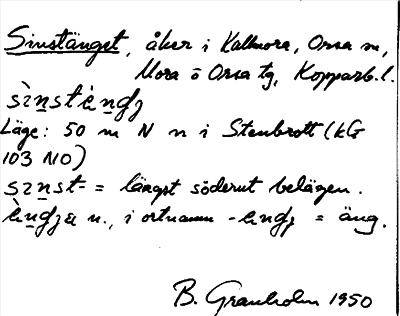 Sinstänget, åker i Kallmora, Orsa sn,
Mora o Orsa tg, Kopparb. l.
sìnstèndʒ
Läge: 50 m N n i Stenbrott (kG
103 NO)
sɪnst- = längst söderut belägen.
èndʒɛ n., i ortnamn -endʒ = äng.
B. Granholm 1950